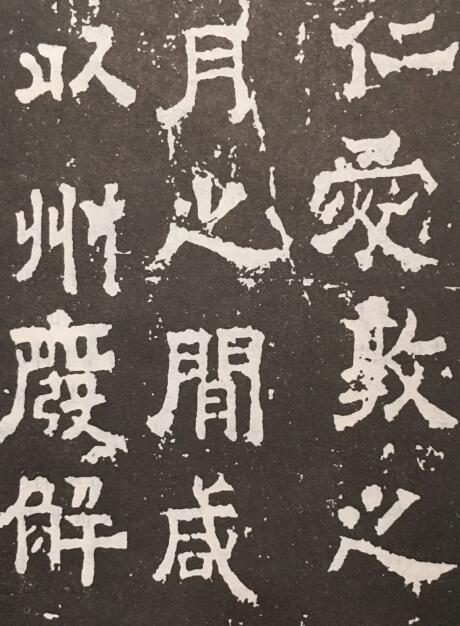 仁愛敦之
月之間咸
以州廢解